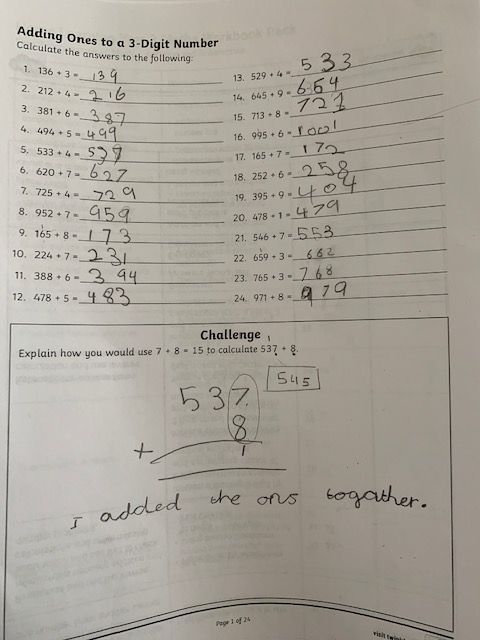 Adding Ones to a 3-Digit Number
Calculate the answers to the following:
1. 136 + 3 = 139
2. 212 + 4 = 216
3. 381 + 6 = 387
4. 494 + 5 = 499
5. 533 + 4 = 537
6. 620 + 7 = 627
7. 725 + 4 = 729
8. 952 + 7 = 959
9. 165 + 8 = 173
10. 224 + 7 = 231
11. 388 + 6 = 394
12. 478 + 5 = 483
13. 529 + 4 = 533
14. 645 + 9 = 654
15. 713 + 8 = 727
16. 995 + 6 = 1001
17. 165 + 7 = 172
18. 252 + 6 = 258
19. 395 + 9 = 404
20. 478 + 1 = 479
21. 546 + 7 = 553
22. 659 + 3 = 662
23. 765 + 3 = 768
24. 971 + 8 = 979
Challenge
Explain how you would use 7 + 8 = 15 to calculate 537 + 8.
545
537
8
+
1
I added the ons togather.
Page 1 of 24
visit